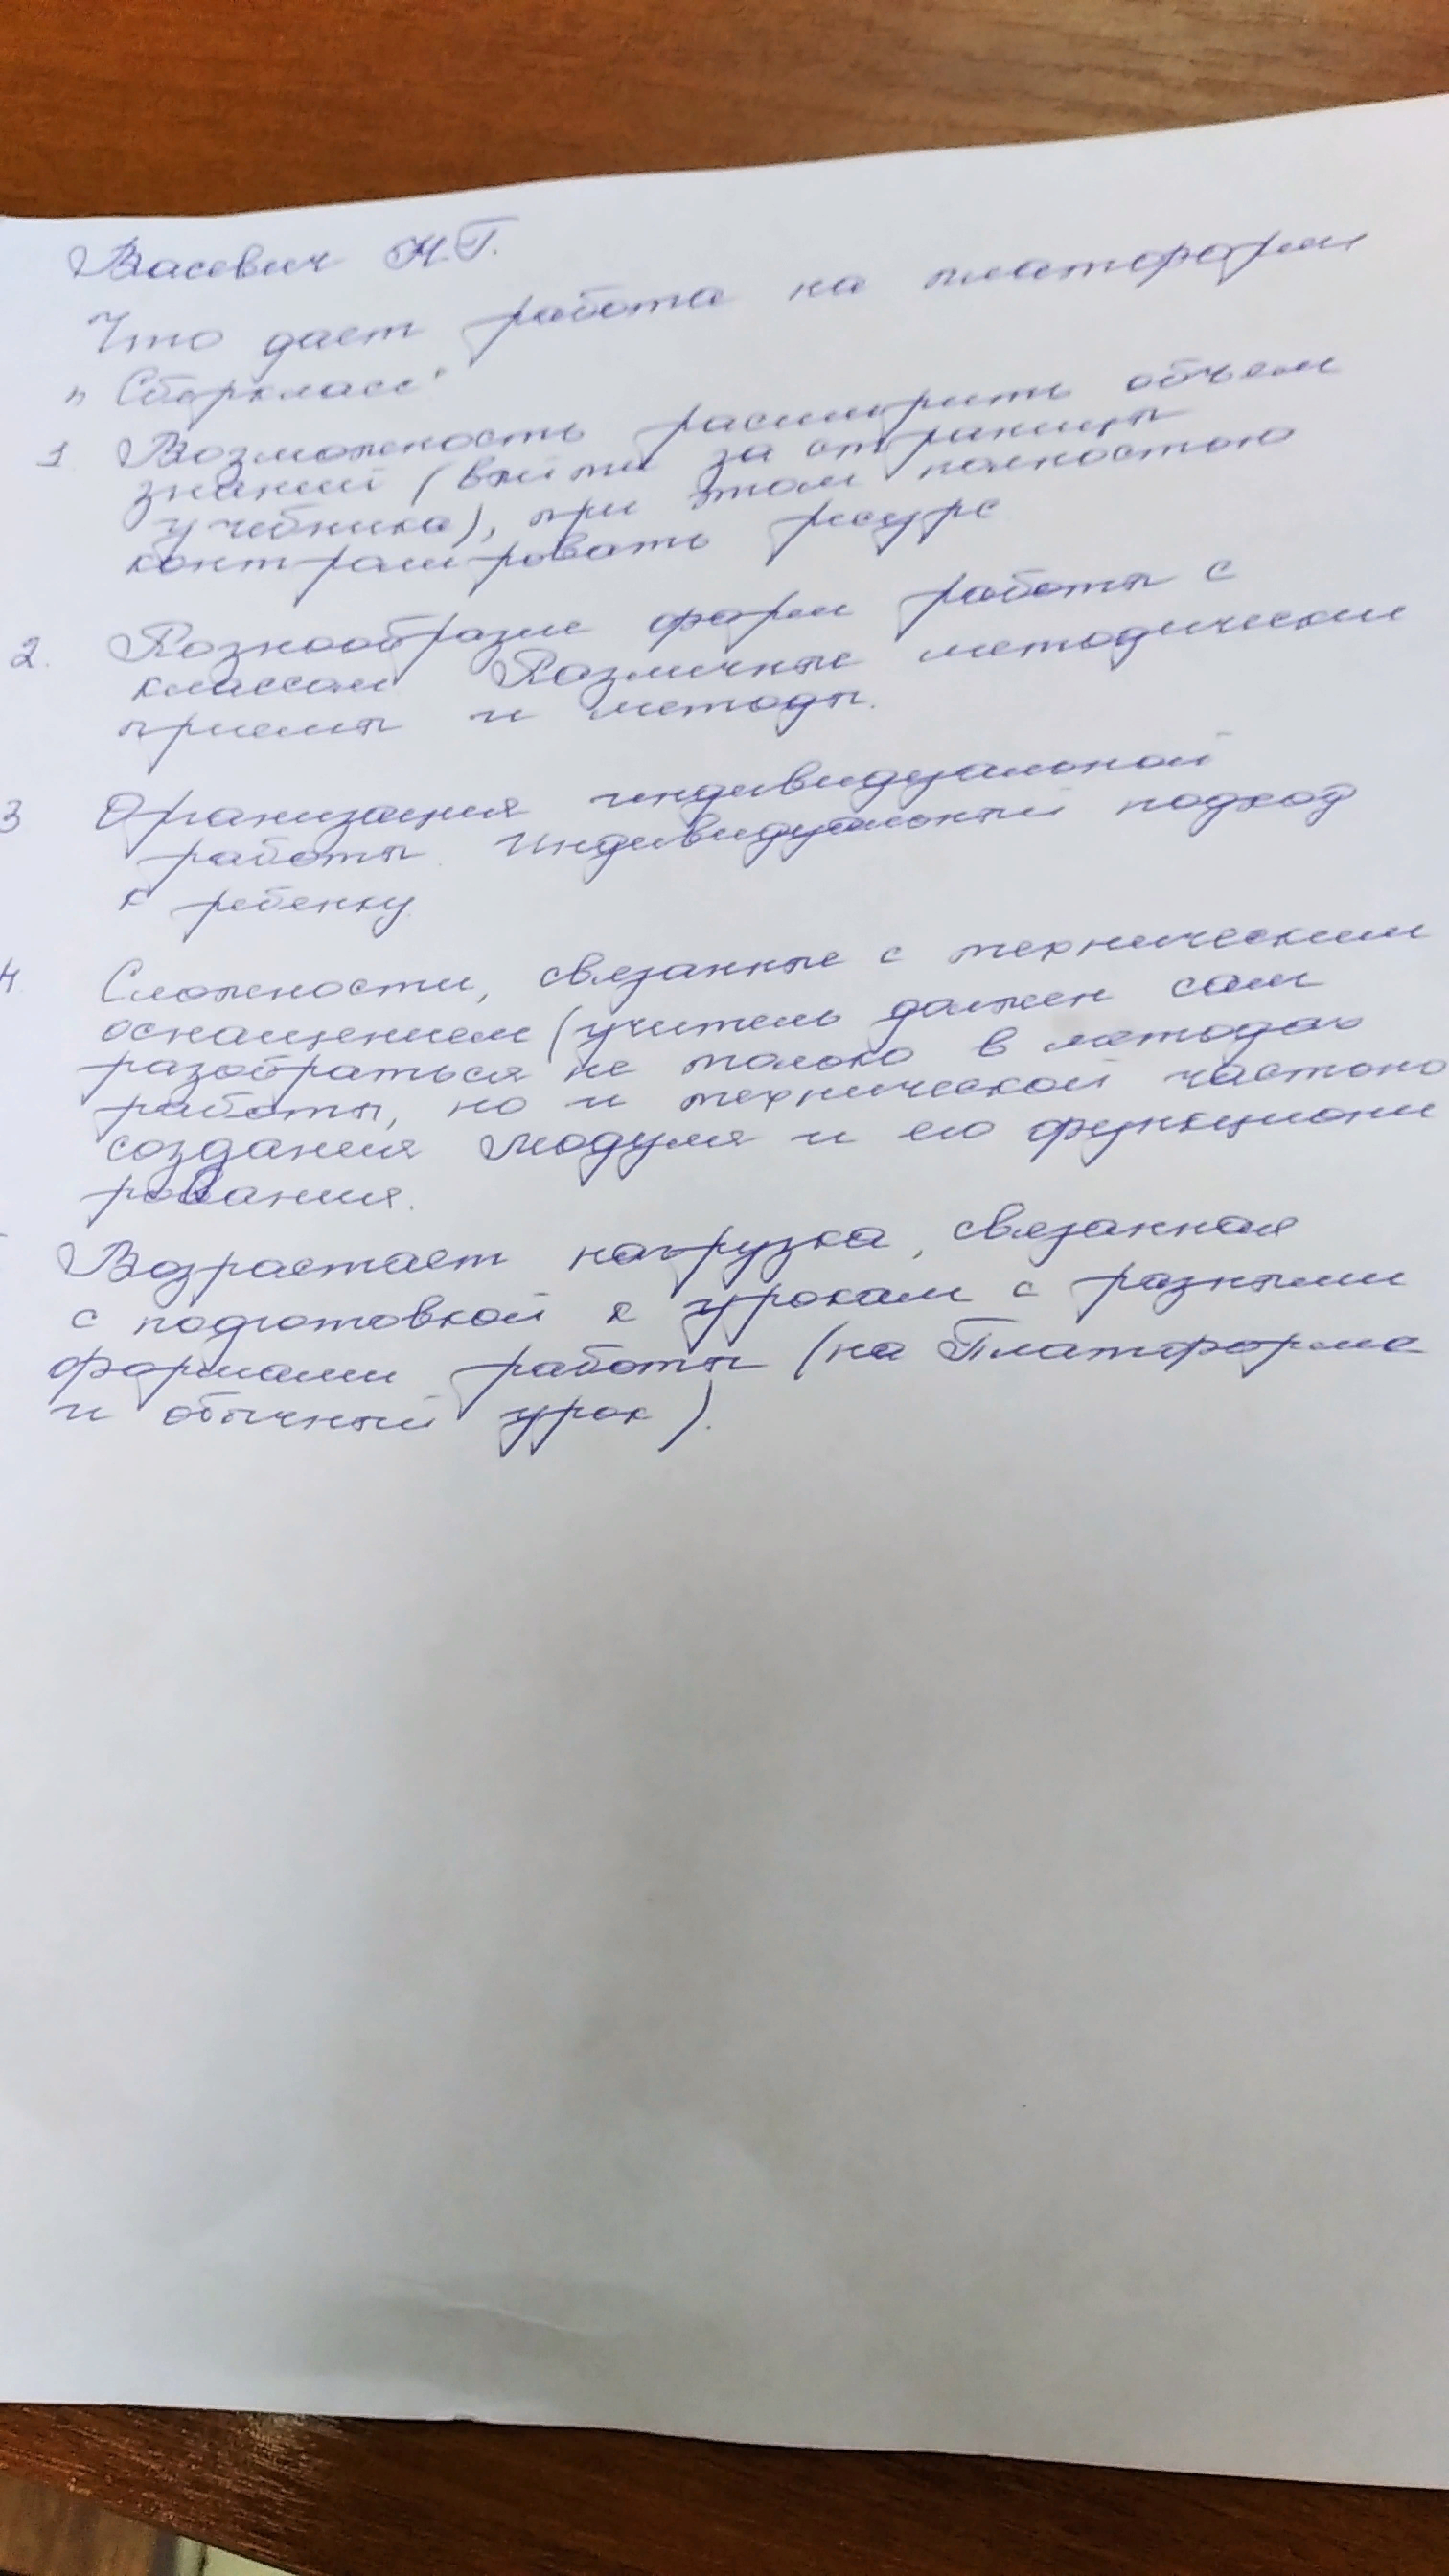 Васевич Н.Г.
Что дает работа на платформе
"Сберкласс"
1 Возможность расширить объем
знаний (выйти за страницы
учебника), при этом полностью
контролировать ресурс
2. Разнообразие форм работы с
классом Различные методические
приемы и методы.
3 Организация индивидуальной
работы. Индивидуальный подход
к ребенку.
4. Сложности, связанные с техническим
оснащением (учитель должен сам
разобраться не только в методах
работы, но и технической частью
создания модуля и его функциони
рования.
Возрастает нагрузка, связанная
с подготовкой к урокам с разными
формами работы (на Платформе
и обычный урок).